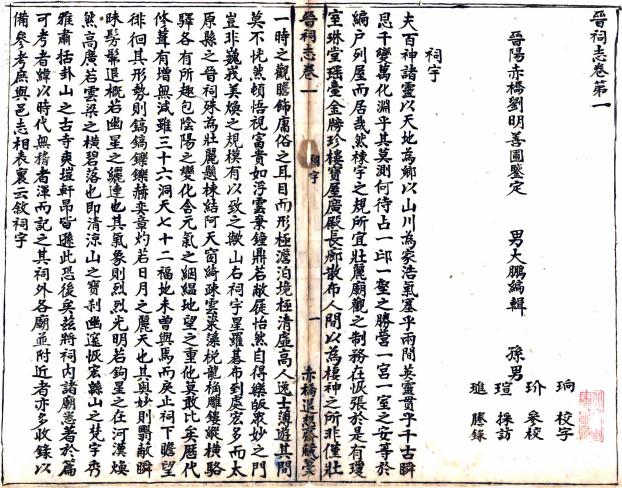 晉祠志卷第一
晉陽赤橋劉明善圃鑒定
男大鵬編輯
孫男
珦校字
玠參校
瑄採訪
璡謄錄
祠宇
夫百神諸靈以天地為鄉以山川為家浩氣塞乎兩間英靈貫乎千古瞬
息千變萬化淵乎其莫測何待占一邱一壑之勝營一宮一室之安等於
編戶列屋而居哉然棟宇之規所宜壯麗廟觀之制務在恢張於是有瓊
室琳堂瑤臺金牓珍樓寶屋廣殿長廊散布人間以為棲神之所非僅壯
晉祠志卷一
祠宇
一
赤橋退想齋賦稾
一時之觀瞻飾庸俗之耳目而形極澹泊境極清虛高人逸士薄遊其間
莫不恍然頓悟視富貴如浮雲棄鐘鼎若敝屣怡然自得樂皈眾妙之門
豈非巍峩美煥之規模有以致之歟山右祠宇星羅碁布到處宏多而太
原縣之晉祠殊為壯麗懸棟結阿天窗綺疎雲楶藻梲龍桷雕鏤縱橫駱
驛各有所趣包陰陽之變化含元氣之絪縕地望之重他莫敢比矣歷代
修葺有增無減雖三十六洞天七十二福地未曾與焉而矣止祠下瞻望
徘徊其形勢則鎬鎬鑠鑠赫奕章灼若日月之麗天也其奧妙則翳蔽瞬
昧髣髴退概若幽星之纚連也其氣象則烈烈光明若鉤星之在河漢燦
然高廣若雲梁之橫碧落也即清涼山之寶刹幽邃恢宏縣山之梵宇秀
雅肅括卦山之古寺爽塏軒昂皆遜此恐後矣茲將祠內諸廟憲著於篇
可考者緯以時代無稽者渾而記之其祠外各廟並附近者亦多收錄以
備參考庶與邑志相表裏云敘祠宇